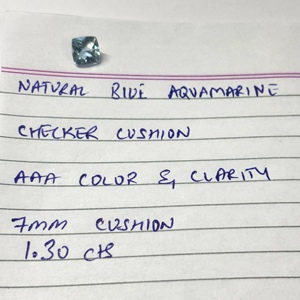 NATURAL BLUE AQUAMARINE
CHECKER CUSHION
AAA COLOR & CLARITY
7MM CUSHION
1.30 cts